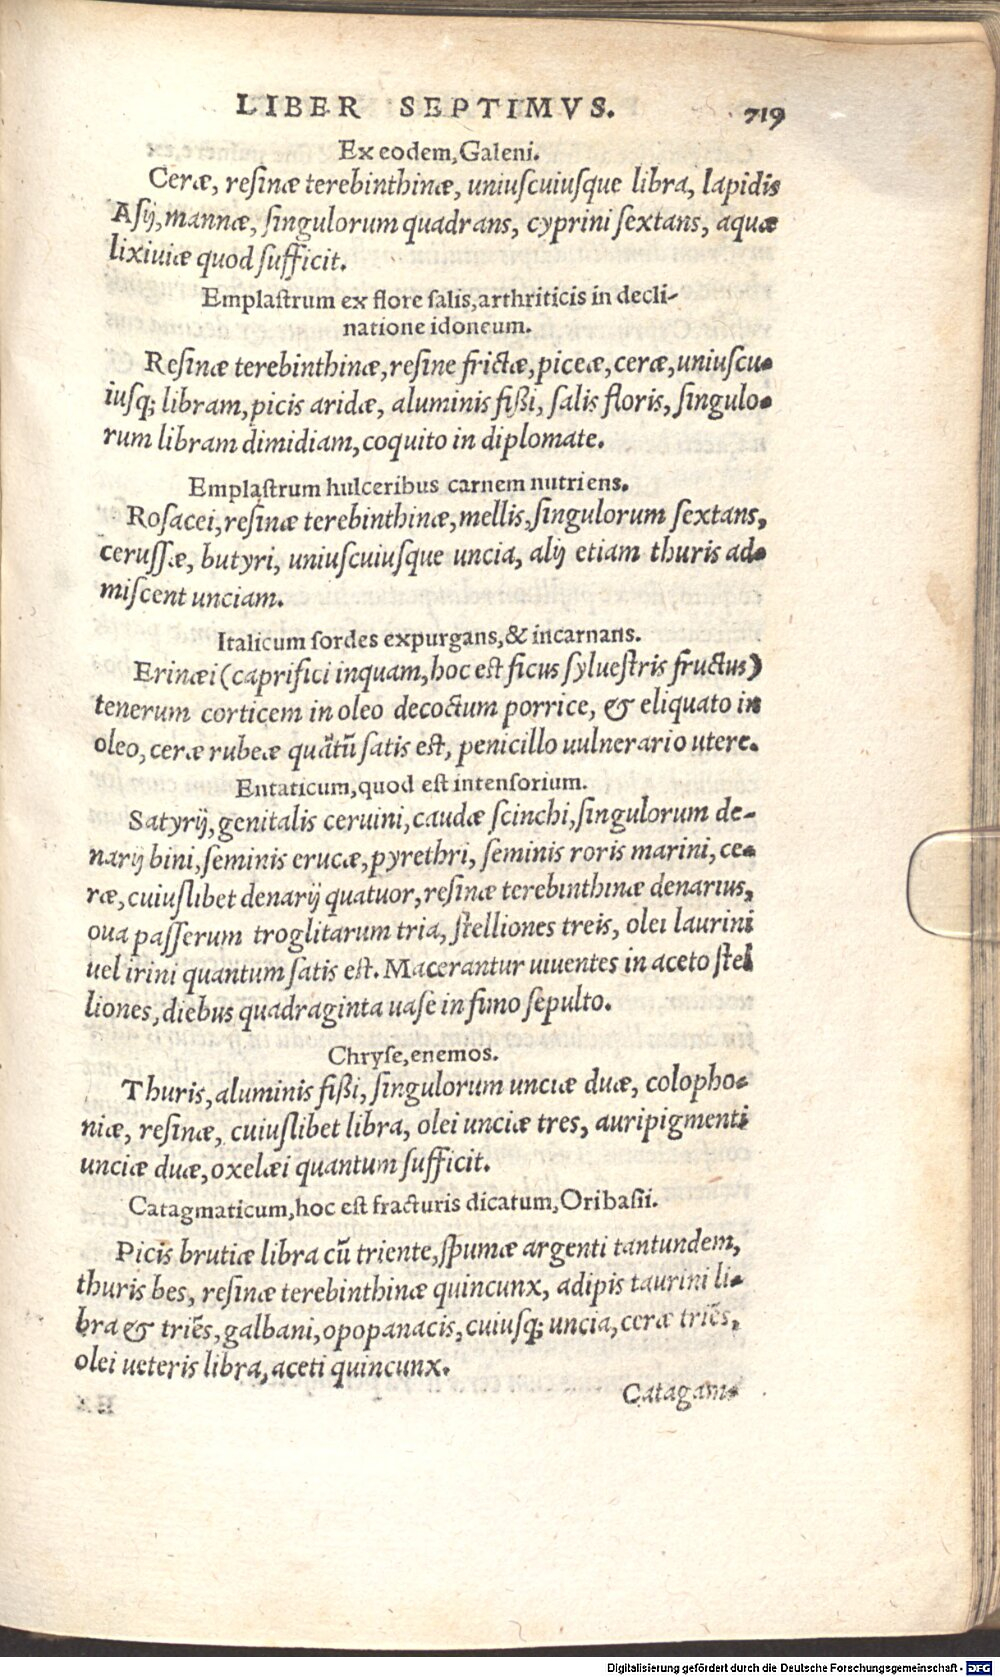 LIBER SEPTIMVS. 719
Ex eodem, Galeni.
Ceræ, resinæ terebinthinæ, uniuscuiusque libra, lapidis
Asij, mannæ, singulorum quadrans, cyprini sextans, aquæ
lixiuiæ quod sufficit.
Emplastrum ex flore salis, arthriticis in decli-
natione idoneum.
Resinæ terebinthinæ, resine frictæ, piceæ, ceræ, uniuscu-
iusq; libram, picis aridæ, aluminis fißi, salis floris, singulo-
rum libram dimidiam, coquito in diplomate.
Emplastrum hulceribus carnem nutriens.
Rosacei, resinæ terebinthinæ, mellis, singulorum sextans,
cerussæ, butyri, uniuscuiusque uncia, alij etiam thuris ad-
miscent unciam.
Italicum sordes expurgans, & incarnans.
Erinæi (caprifici inquam, hoc est ficus syluestris fructus)
tenerum corticem in oleo decoctum porrice, & eliquato in
oleo, ceræ rubeæ quãtũ satis est, penicillo uulnerario utere.
Entaticum, quod est intensorium.
Satyrij, genitalis ceruini, caudæ scinchi, singulorum de-
narij bini, seminis erucæ, pyrethri, seminis roris marini, ce-
ræ, cuiuslibet denarij quatuor, resinæ terebinthinæ denarius,
oua passerum troglitarum tria, stelliones treis, olei laurini
uel irini quantum satis est. Macerantur uiuentes in aceto stel
liones, diebus quadraginta uase in fimo sepulto.
Chryse, enemos.
Thuris, aluminis fißi, singulorum unciæ duæ, colopho-
niæ, resinæ, cuiuslibet libra, olei unciæ tres, auripigmenti
unciæ duæ, oxelæi quantum sufficit.
Catagmaticum, hoc est fracturis dicatum, Oribasii.
Picis brutiæ libra cũ triente, spumæ argenti tantundem,
thuris bes, resinæ terebinthinæ quincunx, adipis taurini li-
bra & triẽs, galbani, opopanacis, cuiusq; uncia, ceræ triẽs,
olei ueteris libra, aceti quincunx.
Catagam-
Digitalisierung gefördert durch die Deutsche Forschungsgemeinschaft - DFG